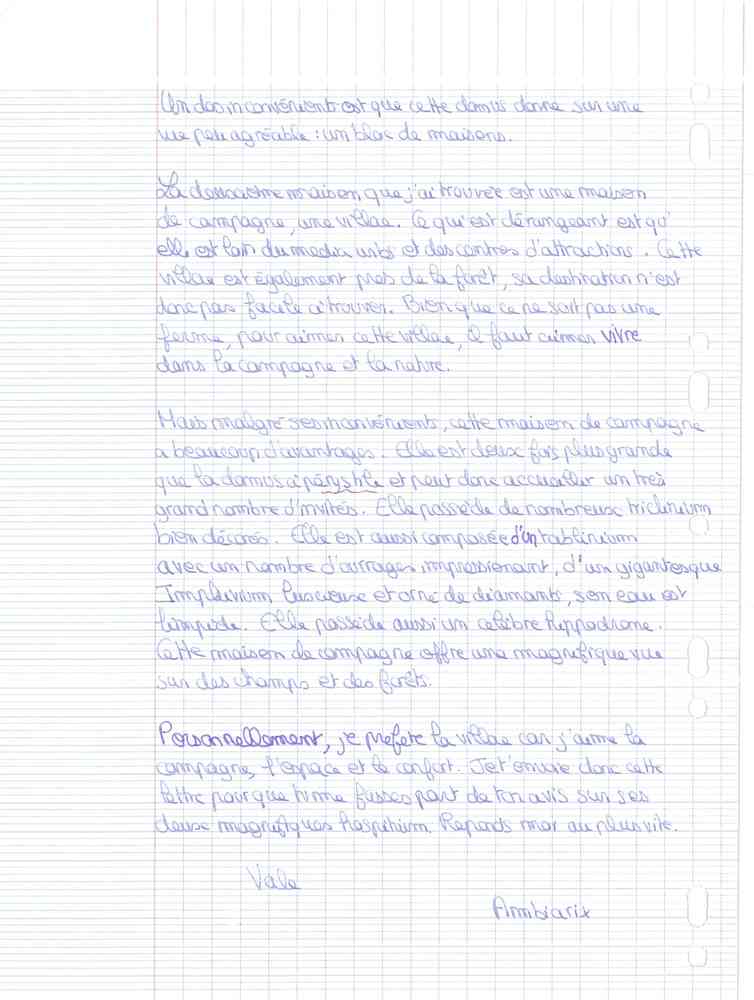 Un des inconvénients est que cette domus donne sur une
vue peu agréable : un bloc de maisons.
La deuxième maison que j'ai trouvée est une maison
de campagne, une villae. Ce qui est dérangeant est qu'
elle est loin du media urbs et des centres d'attractions. Cette
villae est également près de la forêt, sa destination n'est
donc pas facile à trouver. Bien que ce ne soit pas une
ferme, pour aimer cette villae, il faut aimer vivre
dans la campagne et la nature.
Mais malgré ses inconvénients, cette maison de campagne
a beaucoup d'avantages. Elle est deux fois plus grande
que la domus à péristyle et peut donc accueillir un très
grand nombre d'invités. Elle possède de nombreux triclinium
bien décorés. Elle est aussi composée d'un tablinium
avec un nombre d'ouvrages impressionant, d'un gigantesque
Impluvium luxueux et orné de diamants, son eau est
limpide. Elle possède aussi un célèbre hippodrome.
Cette maison de campagne offre une magnifique vue
sur des champs et des forêts.
Personnellement, je préfère la villae car j'aime la
campagne, l'espace et le confort. Je t'envoie donc cette
lettre pour que tu me fasses part de ton avis sur ses
deux magnifiques hospitium. Reponds moi au plus vite.
Vale
Ambiarix